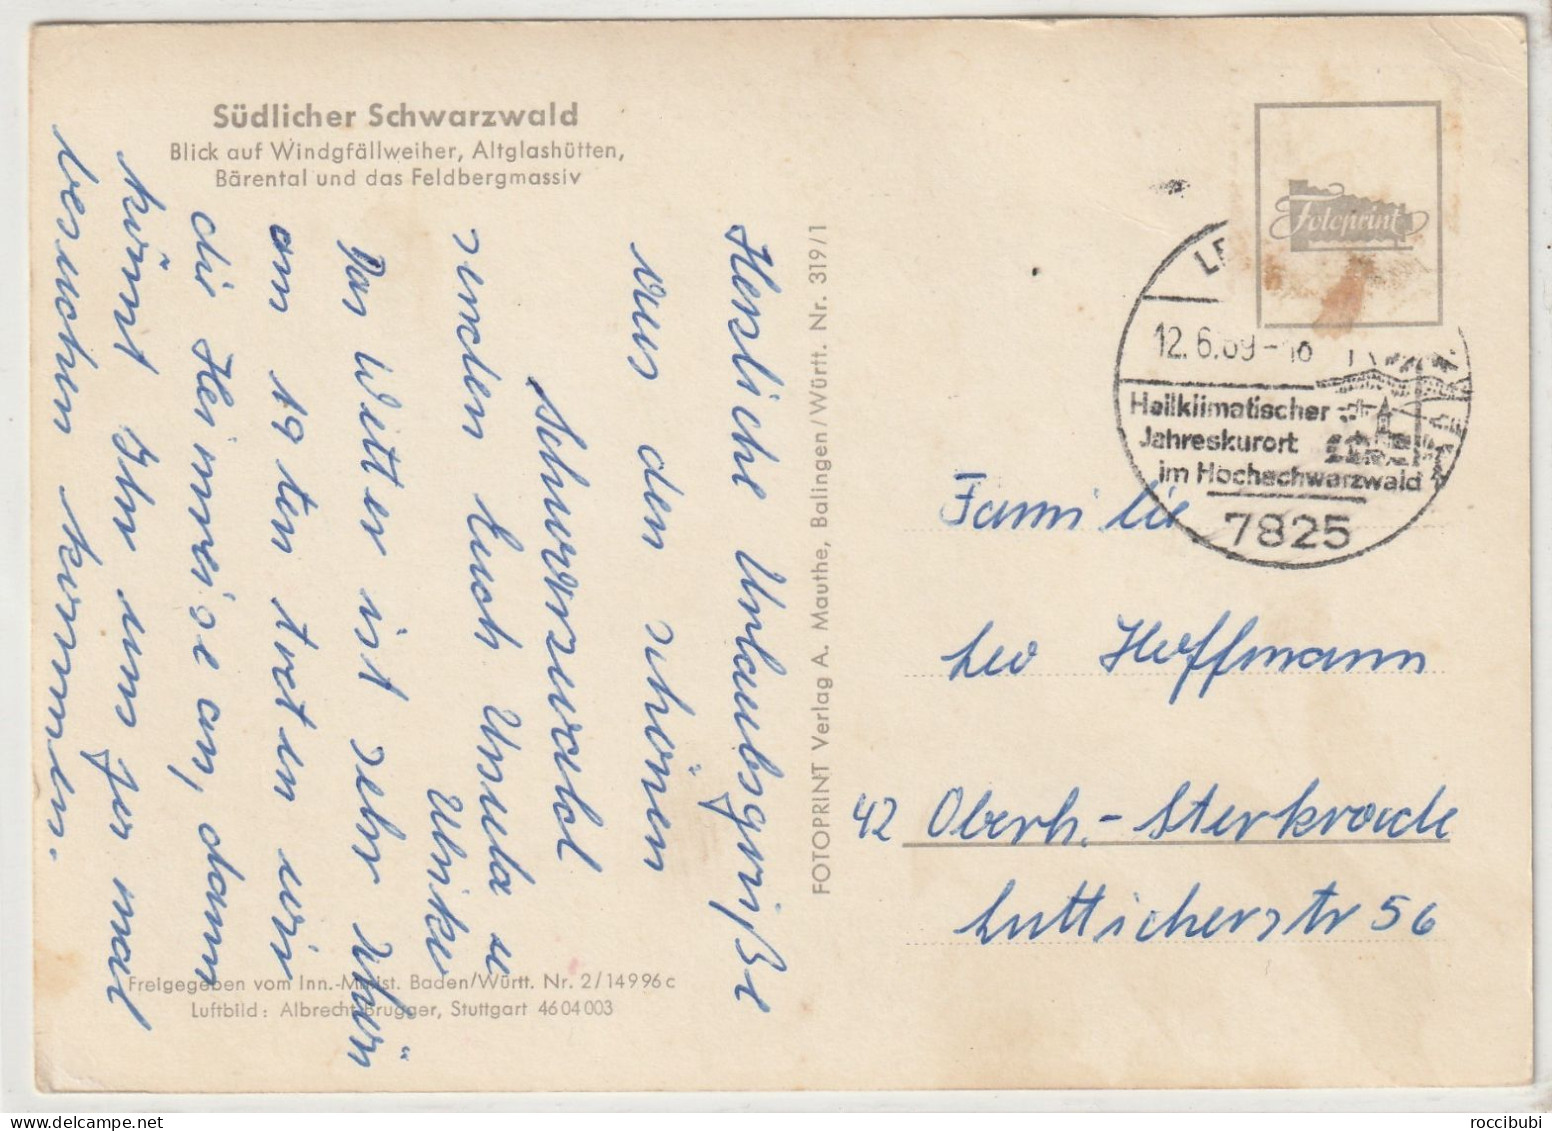 Südlicher Schwarzwald
Blick auf Windgfällweiher, Altglashütten,
Bärental und das Feldbergmassiv
Herzliche Urlaubsgrüße
aus den schönen
Schwarzwald
senden Euch Ursula u
Ulrike
Das Wetter ist sehr schön
am 19 ten treten wir
die Heimreise an, dann
könnt Ihr uns ja mal
besuchen kommen.
FOTOPRINT Verlag A. Mauthe, Balingen/Württ. Nr. 319/1
Fotoprint
12.6.69-18
Heilklimatischer
Jahreskurort
im Hochschwarzwald
7825
Familie
Leo Hoffmann
42 Oberh.-Sterkrade
Lutticherstr 56
Freigegeben vom Inn.-Minist. Baden/Württ. Nr. 2/14996c
Luftbild: Albrecht Brugger, Stuttgart 4604003
roccibubi